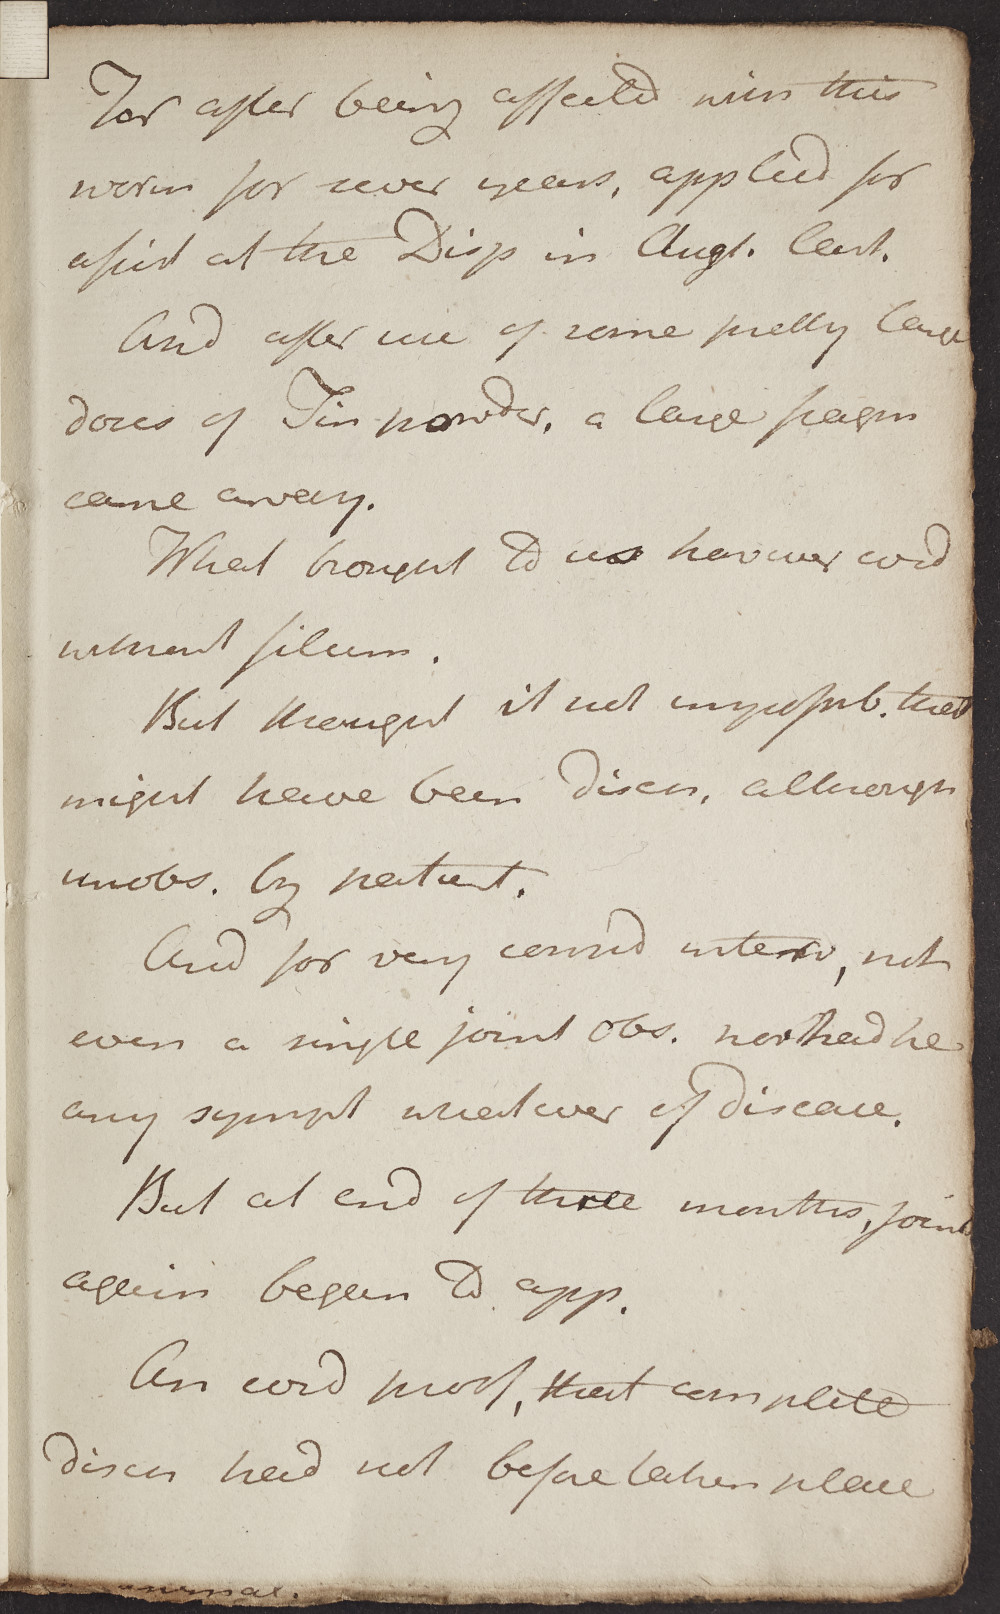 For after being affected with this
worm for sever years, applied for
assist at the Disp in Augt. last.
And after use of some pretty large
doses of Tin powder, a large fragm
came away.
What brought to us however word
without filum.
But thought it not impossib. that
might have been disch, although
unobs. by patient.
And for very consid interv, not
even a single joint obs. nor had he
any sympt whatever of disease.
But at end of three months, joints
again began to app.
An evid proof, that complete
disch had not before taken place
animal.